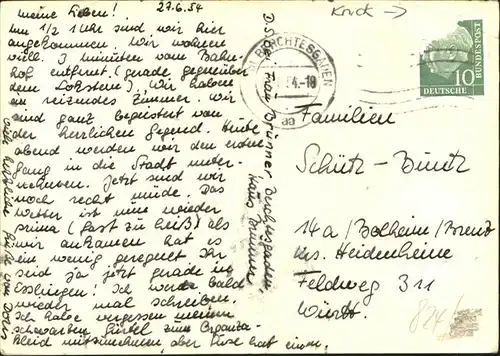 meine Lieben! 27.6.54
Um 1/2 1 Uhr sind wir hier
angekommen. Wir wohnen
vill. 3 Minuten vom Bahn-
hof entfernt (gerade gegenüber
dem Lokstein). Wir haben
ein reizendes Zimmer. Wir
sind ganz begeistert von
der herrlichen Gegend. Heute
abend werden wir den ersten
gang in die Stadt unter-
nehmen. Jetzt sind wir
noch recht müde. Das
Wetter ist nun wieder
prima (fast zu heiß) als
wir ankamen hat es
ein wenig geregnet. Ihr
seid ja jetzt gerade in
Esslingen! Ich werde bald
wieder mal schreiben.
Ich habe vergessen meinen
schwarzen Gürtel zum Organza-
kleid mitzunehmen, aber Luise hat einen.
Krick
BERCHTESGADEN
54.-18
aa
DEUTSCHE
BUNDESPOST
10
Familien
Schütz-Buntz
14a/Bolheim/Brenz
Krs. Heidenheim
Feldweg 311
Württ.
824/
Frau Brunner
Haus Brunner